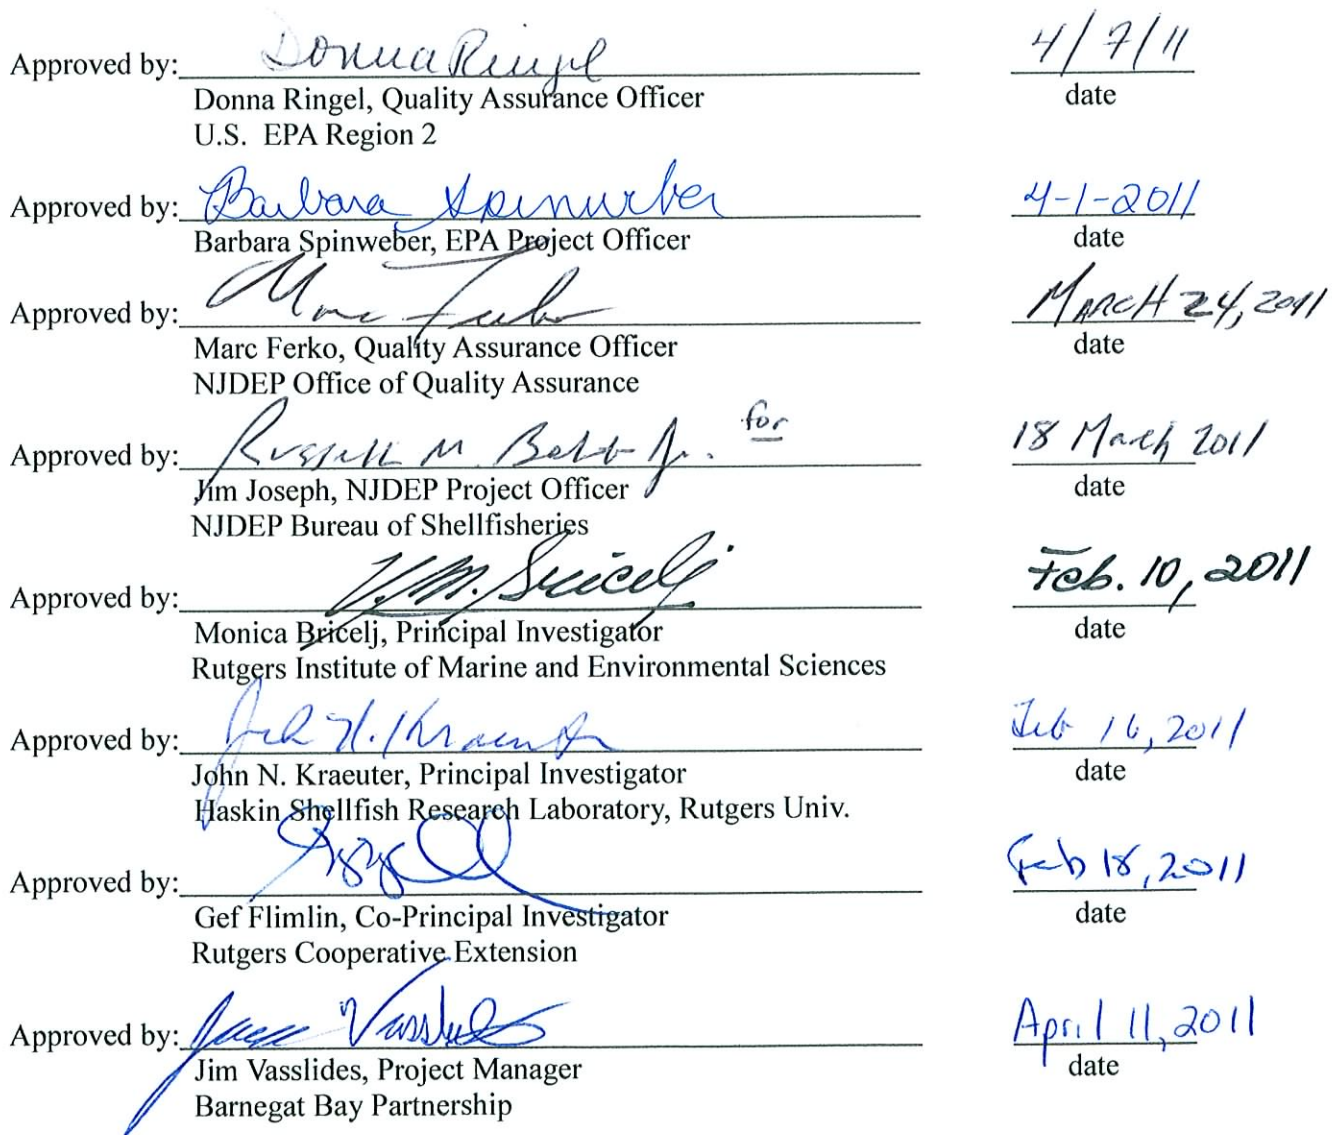 Approved by: Donna Ringel 4/7/11
Donna Ringel, Quality Assurance Officer date
U.S. EPA Region 2
Approved by: Barbara Spinweber 4-1-2011
Barbara Spinweber, EPA Project Officer date
Approved by: Marc Ferko MARCH 24, 2011
Marc Ferko, Quality Assurance Officer date
NJDEP Office of Quality Assurance
Approved by: Russell M. Babb Jr. for 18 March 2011
Jim Joseph, NJDEP Project Officer date
NJDEP Bureau of Shellfisheries
Approved by: V. M. Bricelj Feb. 10, 2011
Monica Bricelj, Principal Investigator date
Rutgers Institute of Marine and Environmental Sciences
Approved by: John N. Kraeuter Feb 16, 2011
John N. Kraeuter, Principal Investigator date
Haskin Shellfish Research Laboratory, Rutgers Univ.
Approved by: Feb 18, 2011
Gef Flimlin, Co-Principal Investigator date
Rutgers Cooperative Extension
Approved by: James Vasslides April 11, 2011
Jim Vasslides, Project Manager date
Barnegat Bay Partnership